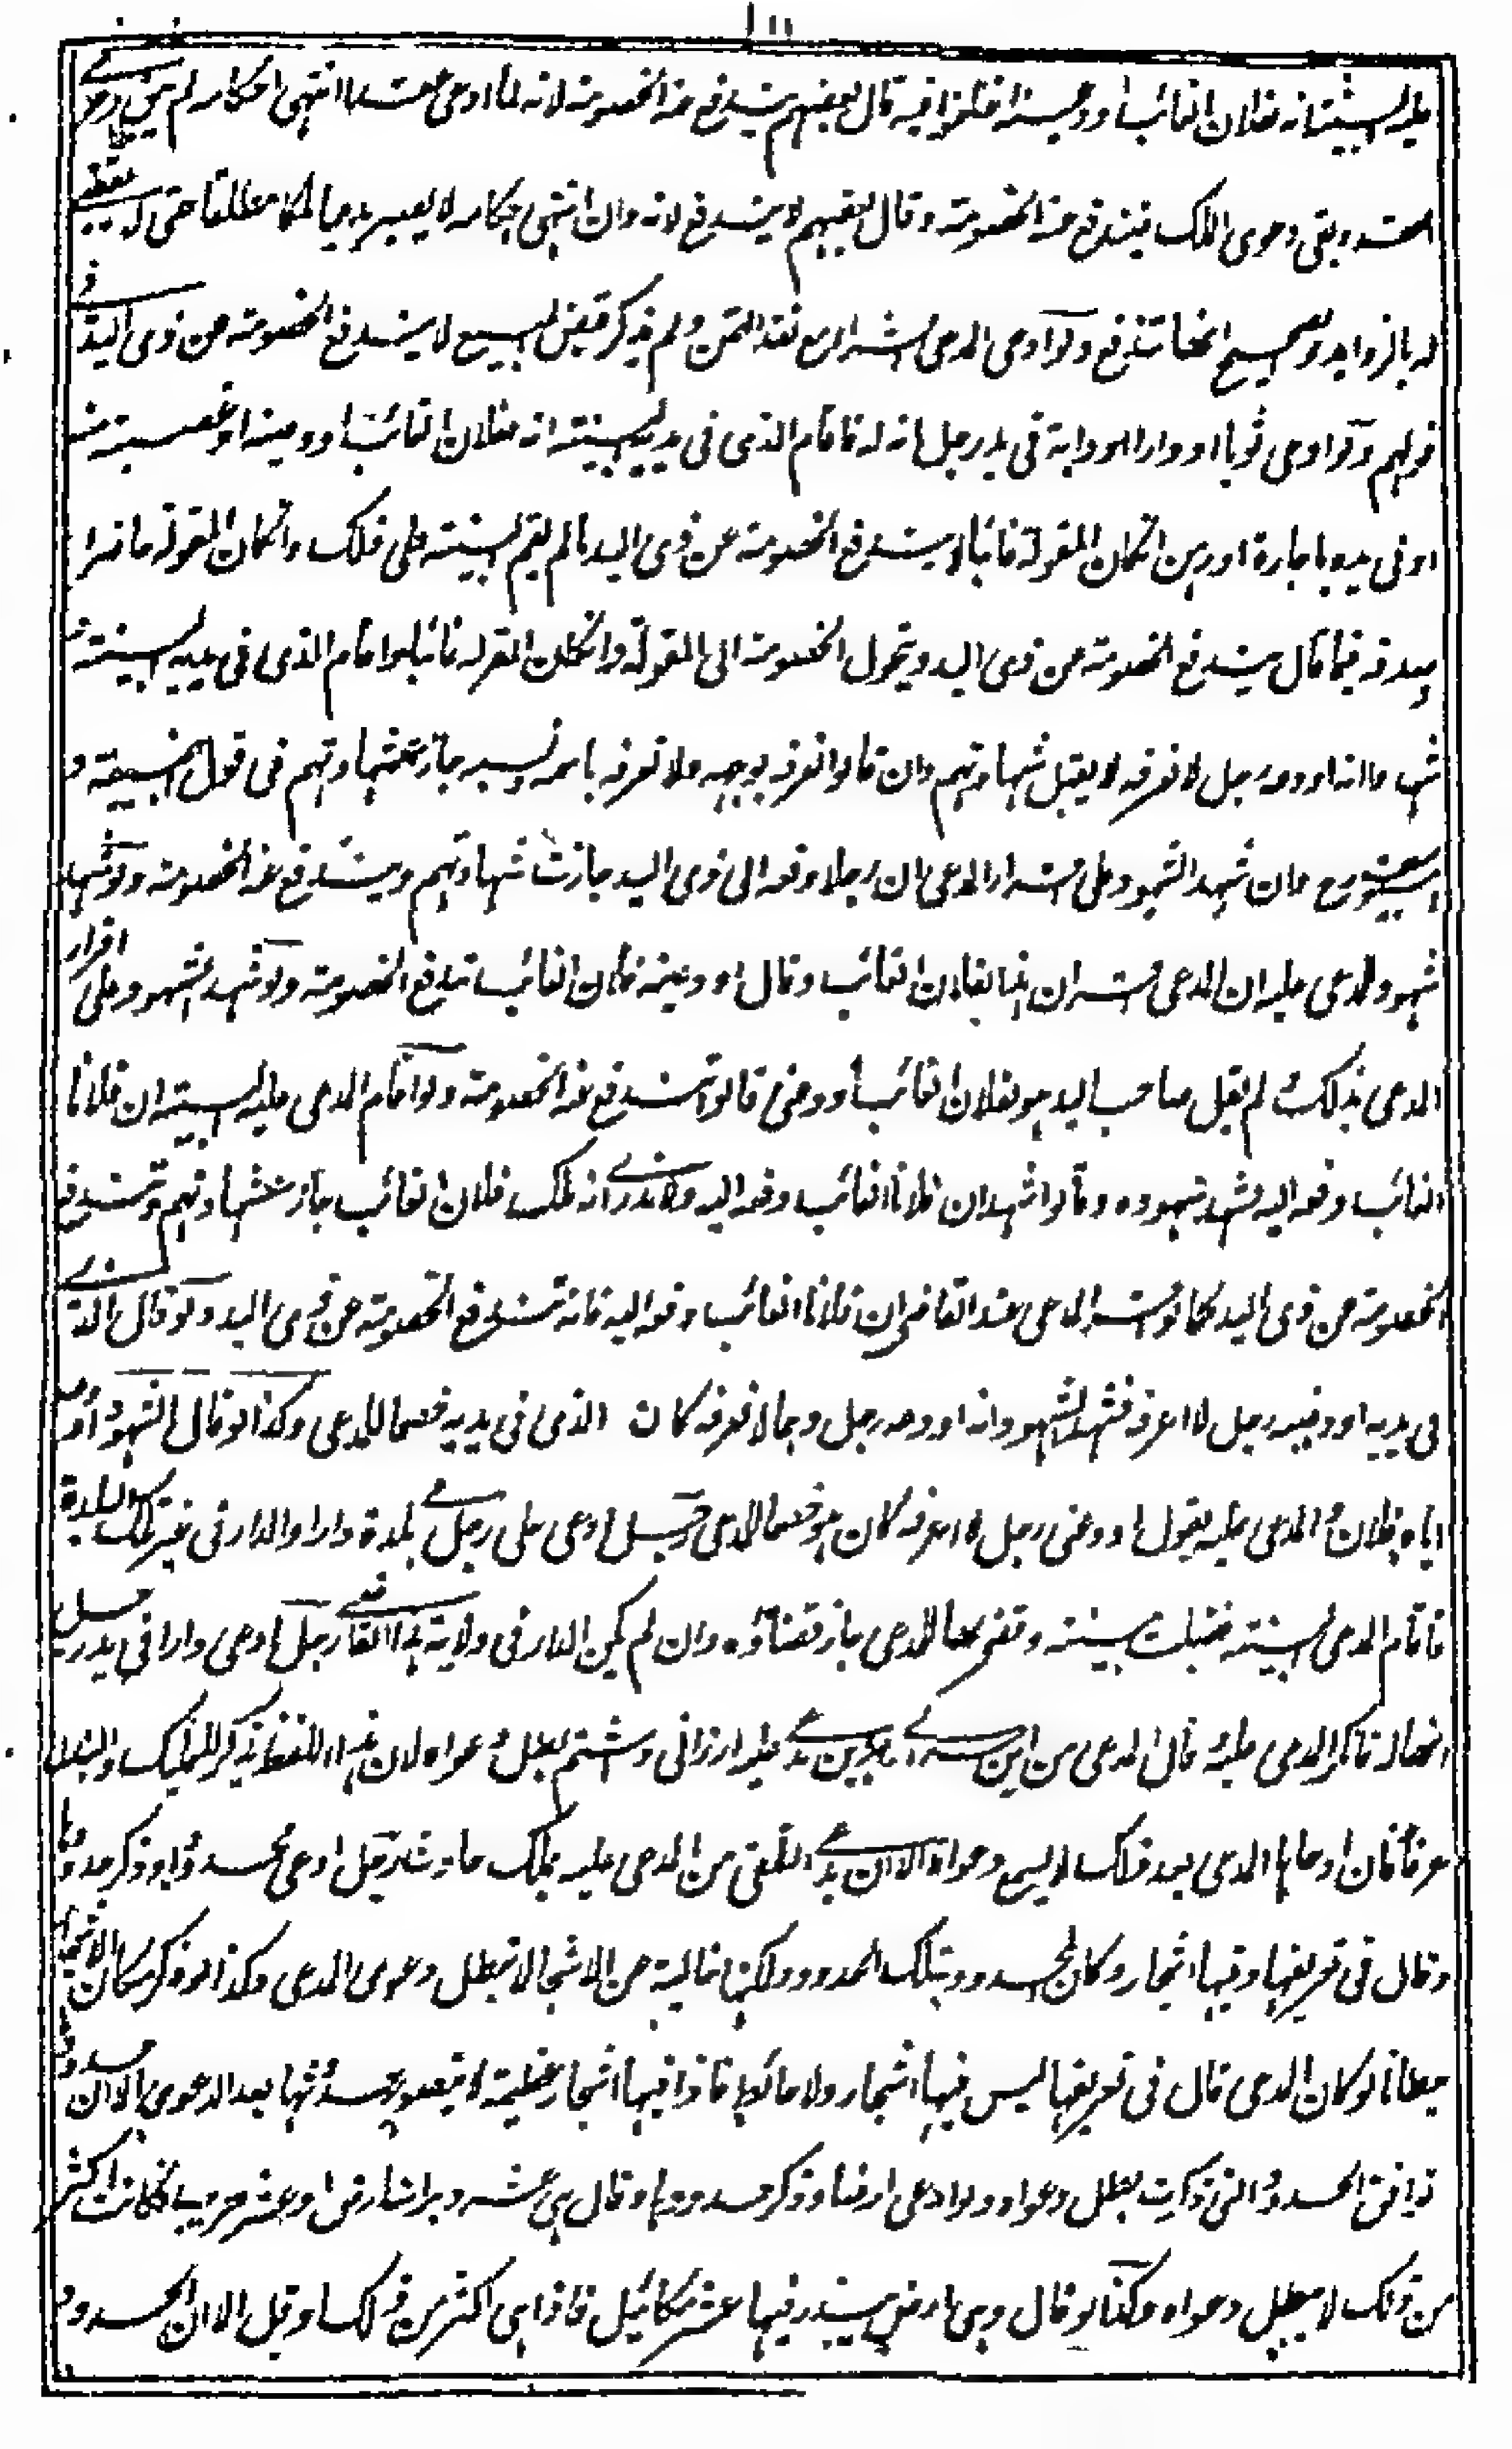 عليه البينة انه لفلان الغائب اودعنيه اختلفوا فيه قال بعضهم يندفع عنه الخصومة لانه لما ادعى عقدا انتهى احكامه لم يبق دعوى
العقد وبقى دعوى الملك فيندفع عنه الخصومة وقال بعضهم لا يندفع لانه وان انتهى احكامه لا يصير مدعيا ملكا مطلقا حتى لا يقضى
له بالزوايد والصحيح انها تندفع ولو ادعى المدعى الشراء مع نقد الثمن ولم يذكر قبض المبيع لا يندفع الخصومة عن ذى اليد فى
قولهم ولو ادعى ثوبا او دارا او دابة فى يد رجل انه له فاقام الذى فى يديه البينة انه لفلان الغائب اودعنيه او غصبته منه
او فى يده باجارة او رهن انكان المقر له غائبا لا يندفع الخصومة عن ذى اليد مالم يقم البينة على ذلك وانكان المقر له حاضرا
وصدقه فيما قال يندفع الخصومة عن ذى اليد ويتحول الخصومة الى المقر له وانكان المقر له غائبا واقام الذى فى يديه البينة
شهدا انه اودعه رجل لا نعرفه لا يقبل شهادتهم وان قالوا نعرفه بوجهه ولا نعرفه باسمه ونسبه جازت شهادتهم فى قول ابى حنيفة و
وان شهد الشهود على اقرار المدعى ان رجلا دفعه الى ذى اليد جازت شهادتهم ويندفع عنه الخصومة ولو شهد
شهود المدعى عليه ان المدعى اقر ان لفلان الغائب وقال اودعنيه فلان الغائب تندفع الخصومة ولو شهد الشهود على اقرار
المدعى بذلك ولم يقل صاحب اليد هو لفلان الغائب اودعنى قالوا تندفع عنه الخصومة ولو اقام المدعى عليه البينة ان فلانا
الغائب دفعه اليه فشهد شهوده وقالوا نشهد ان فلانا الغائب دفعه اليه ولا ندرى انه ملك فلان الغائب جازت شهادتهم وتندفع
الخصومة عن ذى اليد كما لو اقر المدعى عند القاضى ان فلانا الغائب دفعه اليه فانه تندفع الخصومة عن ذى اليد ولو قال الذى
فى يديه اودعنيه رجل لا اعرفه فشهد الشهود انه اودعه رجل وهما لا نعرفه كان الذى فى يديه خصما للمدعى وكذا لو قال الشهود اودعه
اياه فلان والمدعى عليه يقول اودعنى رجل لا اعرفه كان هو خصما للمدعى رجل ادعى على رجل فى بلدة دارا والدار فى غير تلك البلدة
فاقام المدعى البينة فقبلت بينته وقضى بها للمدعى جاز قضاؤه وان لم يكن الدار فى ولاية هذا القاضى رجل ادعى دارا فى يد رجل
انها له فانكر المدعى عليه قال المدعى من اين ارزانى داشتم بطل دعواه لان هذا اللفظ يذكر للتمليك
عرفا فان ادعاها المدعى بعد ذلك لا يسمع دعواه الا ان يدعى التلقى من المدعى عليه بملك حادث رجل ادعى محدودا وذكر حدودها
وقال فى تعريفها وفيها اشجار وكان المحدود بتلك الحدود ولكنها خالية عن الاشجار لا تبطل دعوى المدعى وكذا لو ذكر مكان الاشجار
حيطانا لو كان المدعى قال فى تعريفها ليس فيها اشجار ولا حائط فاذا فيها اشجار عظيمة لا يتصور حدوثها بعد الدعوى الا ان حدودها
توافق الحدود التى ذكرت بطل دعواه ولو ادعى ارضا وذكر حدودها وقال هى عشر دبرات ارض او عشر جريب فكانت اكثر
من ذلك لا يبطل دعواه وكذا لو قال وهى ارض يبذر فيها عشر مكائيل فاذا هى اكثر من ذلك او قيل الا ان الحدود